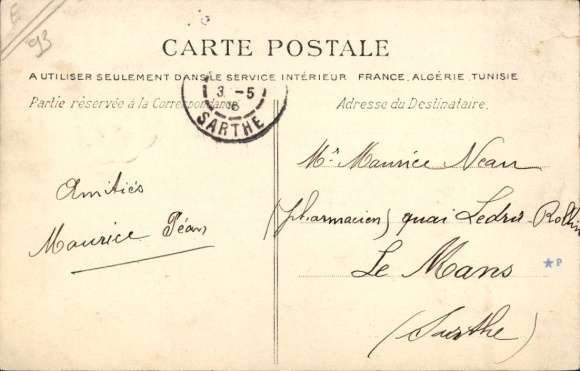 E
93
CARTE POSTALE
A UTILISER SEULEMENT DANS LE SERVICE INTÉRIEUR FRANCE, ALGÉRIE, TUNISIE
Partie réservée à la Correspondance
Adresse du Destinataire.
3 -5
SARTHE
Amitiés
Maurice Péan
Mr Maurice Nean
(pharmacien) quai Ledru-Rollin
Le Mans
(Sarthe)
★P